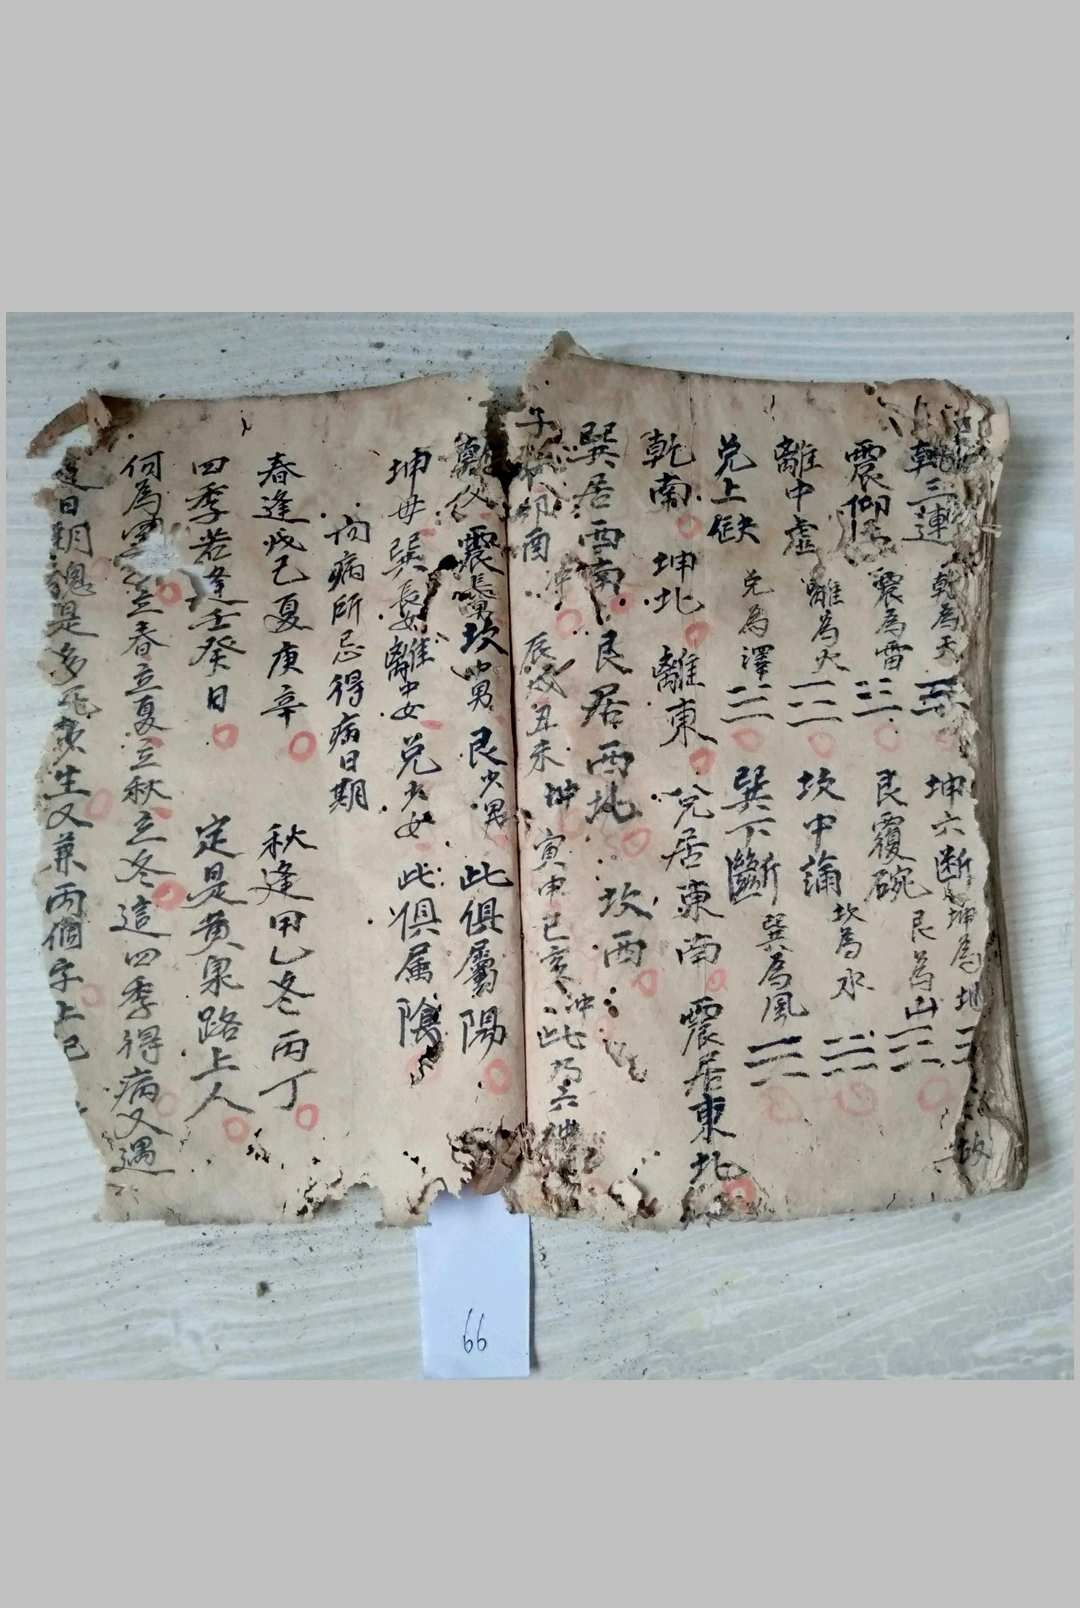 乾三連 乾為天 ☰ 坤六断 坤為地
震仰 震為雷 艮覆碗 艮為山
離中虛 離為火 坎中滿 坎為水
兌上缺 兌為澤 巽下斷 巽為風
乾南 坤北 離東 兌居東南 震居東北
巽居西南 艮居西北 坎西
子午卯酉 冲 辰戌丑未 冲 寅申巳亥 冲 此乃六冲
乾父 震長男 坎中男 艮少男 此俱屬陽
坤母 巽長女 離中女 兌少女 此俱属陰
问病所忌得病日期
春逢戊己夏庚辛 秋逢甲乙冬丙丁
四季若逢壬癸日 定是黄泉路上人
何為 立春立夏立秋立冬這四季得病又遇
這日期 是多 生又兼两個字上
66